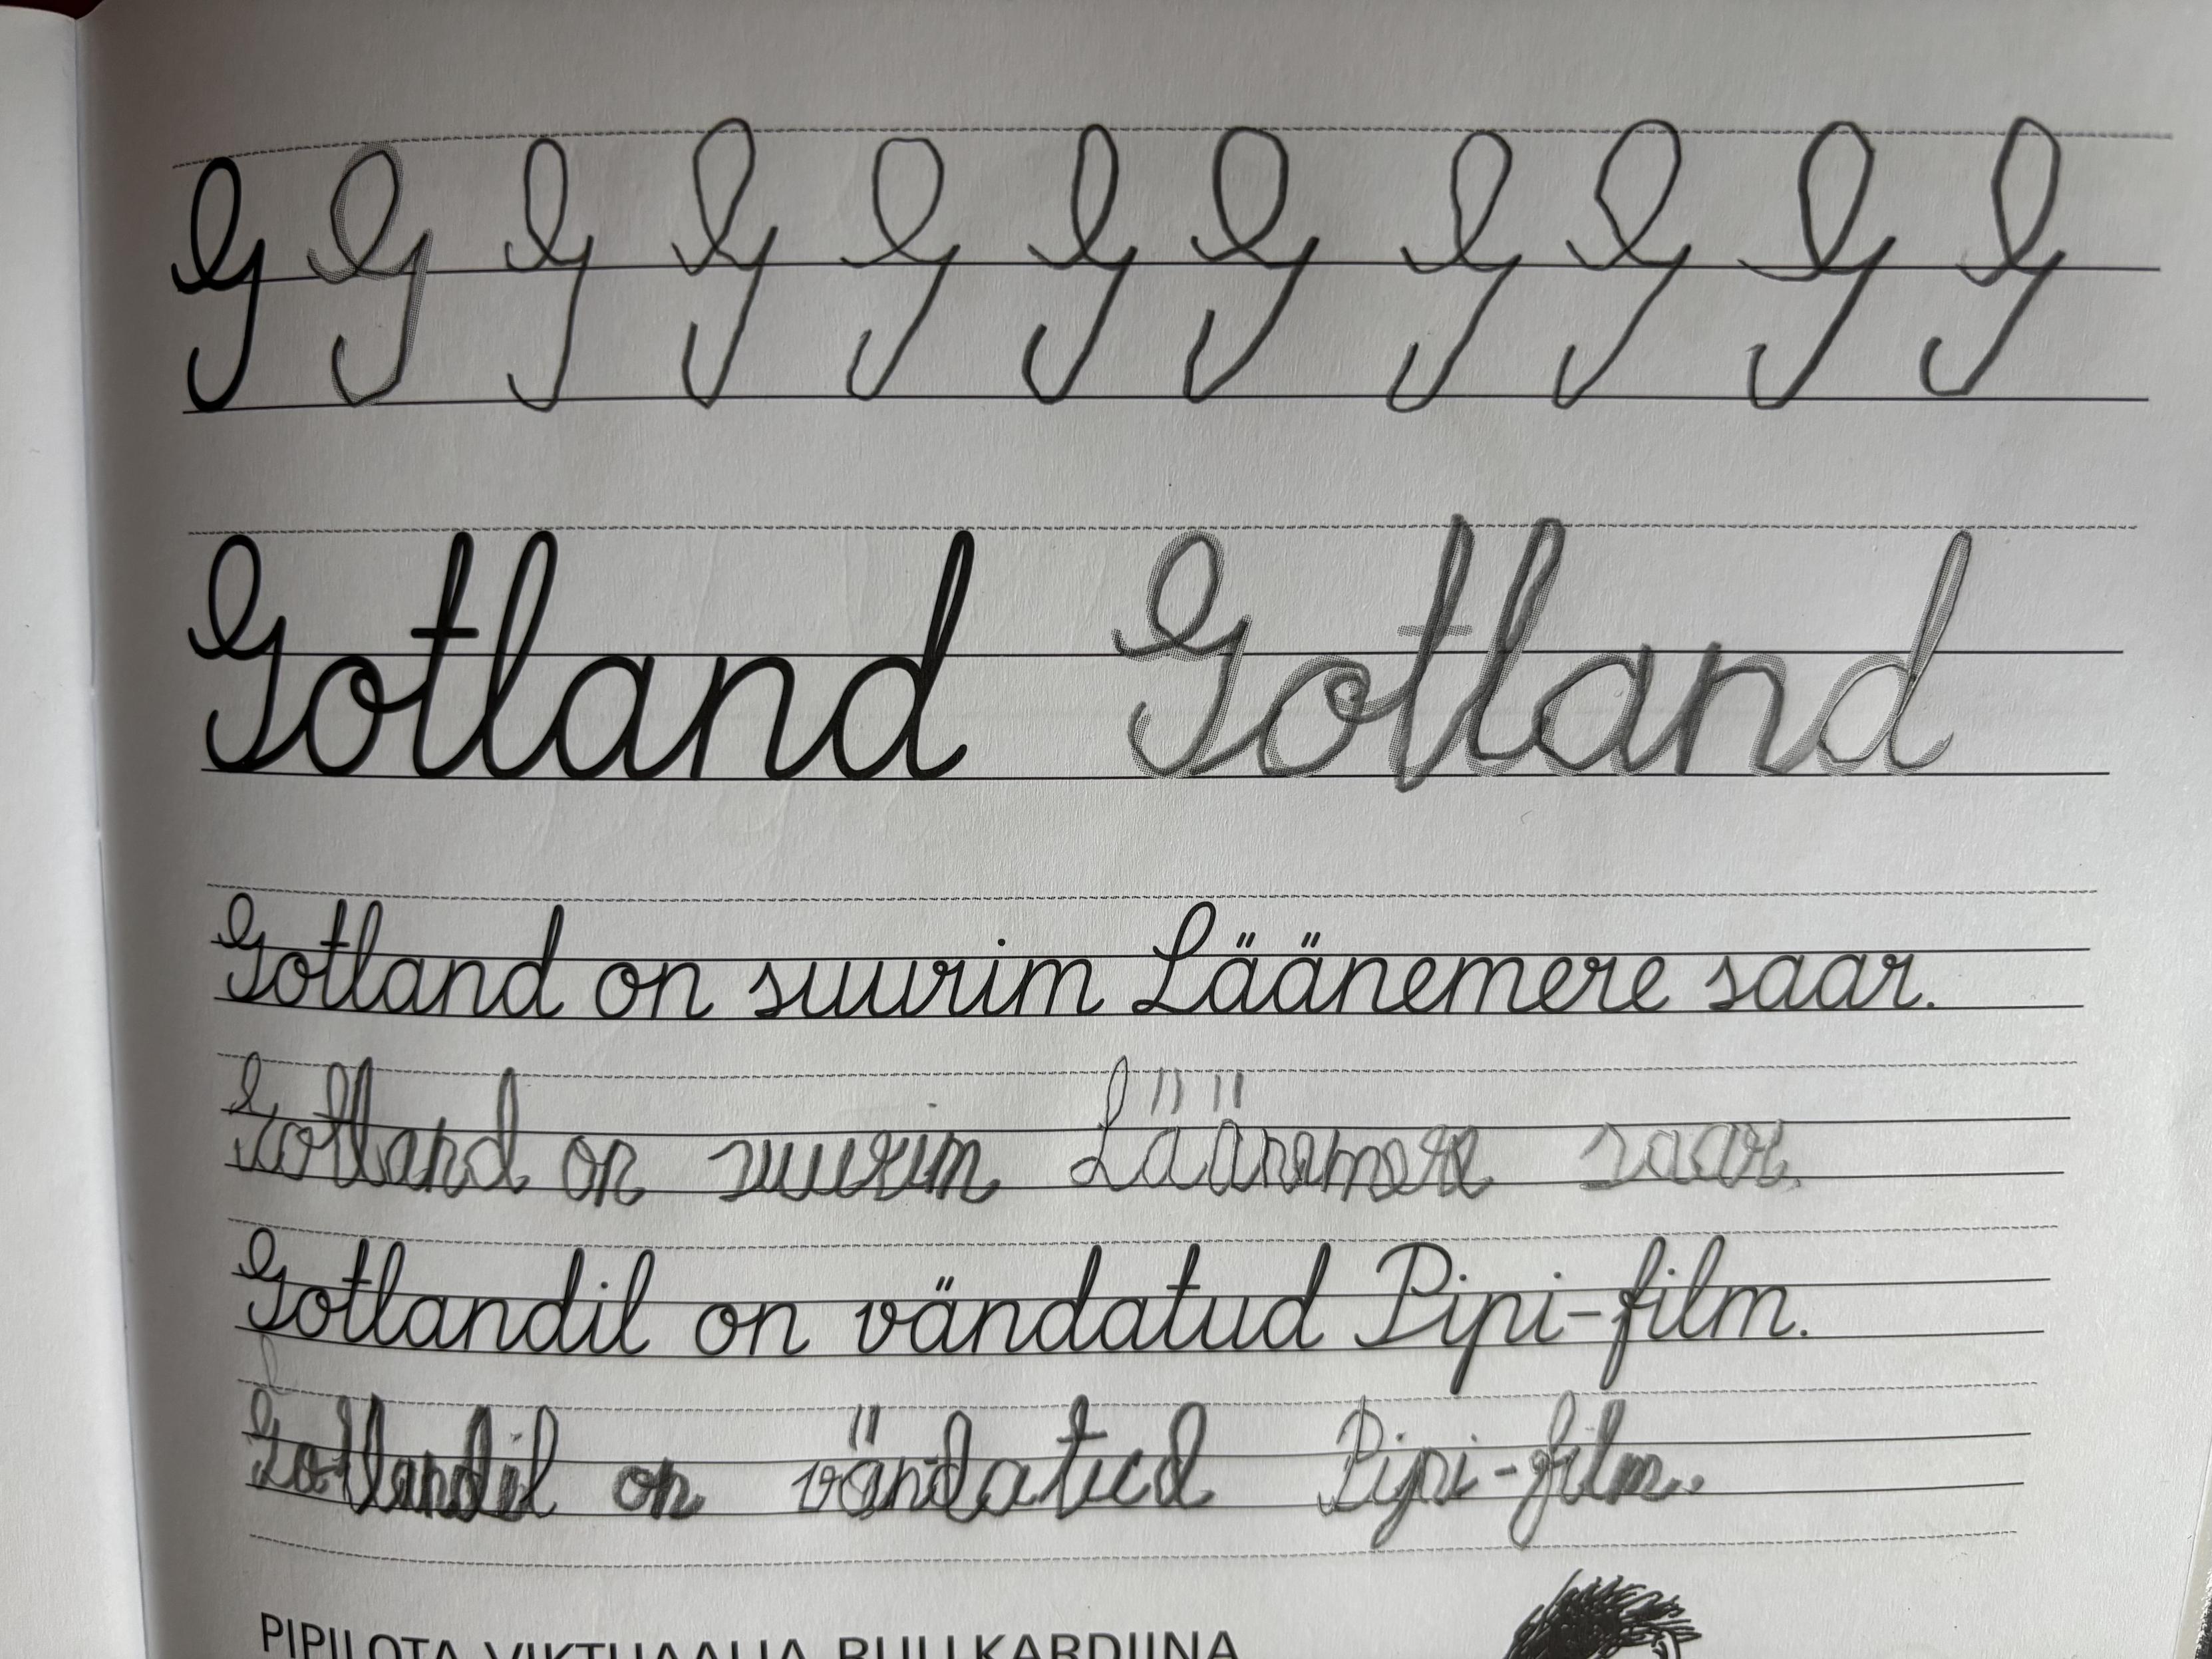 G G G G G G G G G G G
Gotland Gotland
Gotland on suurim Läänemere saar.
Gotland on suurim Läänemere saar.
Gotlandil on vändatud Pipi-film.
Gotlandil on vändatud Pipi-film.
PIPILOTA VIKTUAALIA RULLKARDIINA